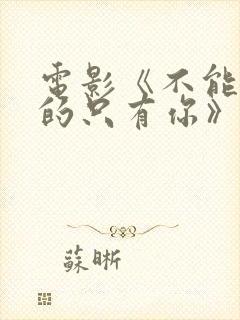 電影《不能
的只有你》
蘇晰